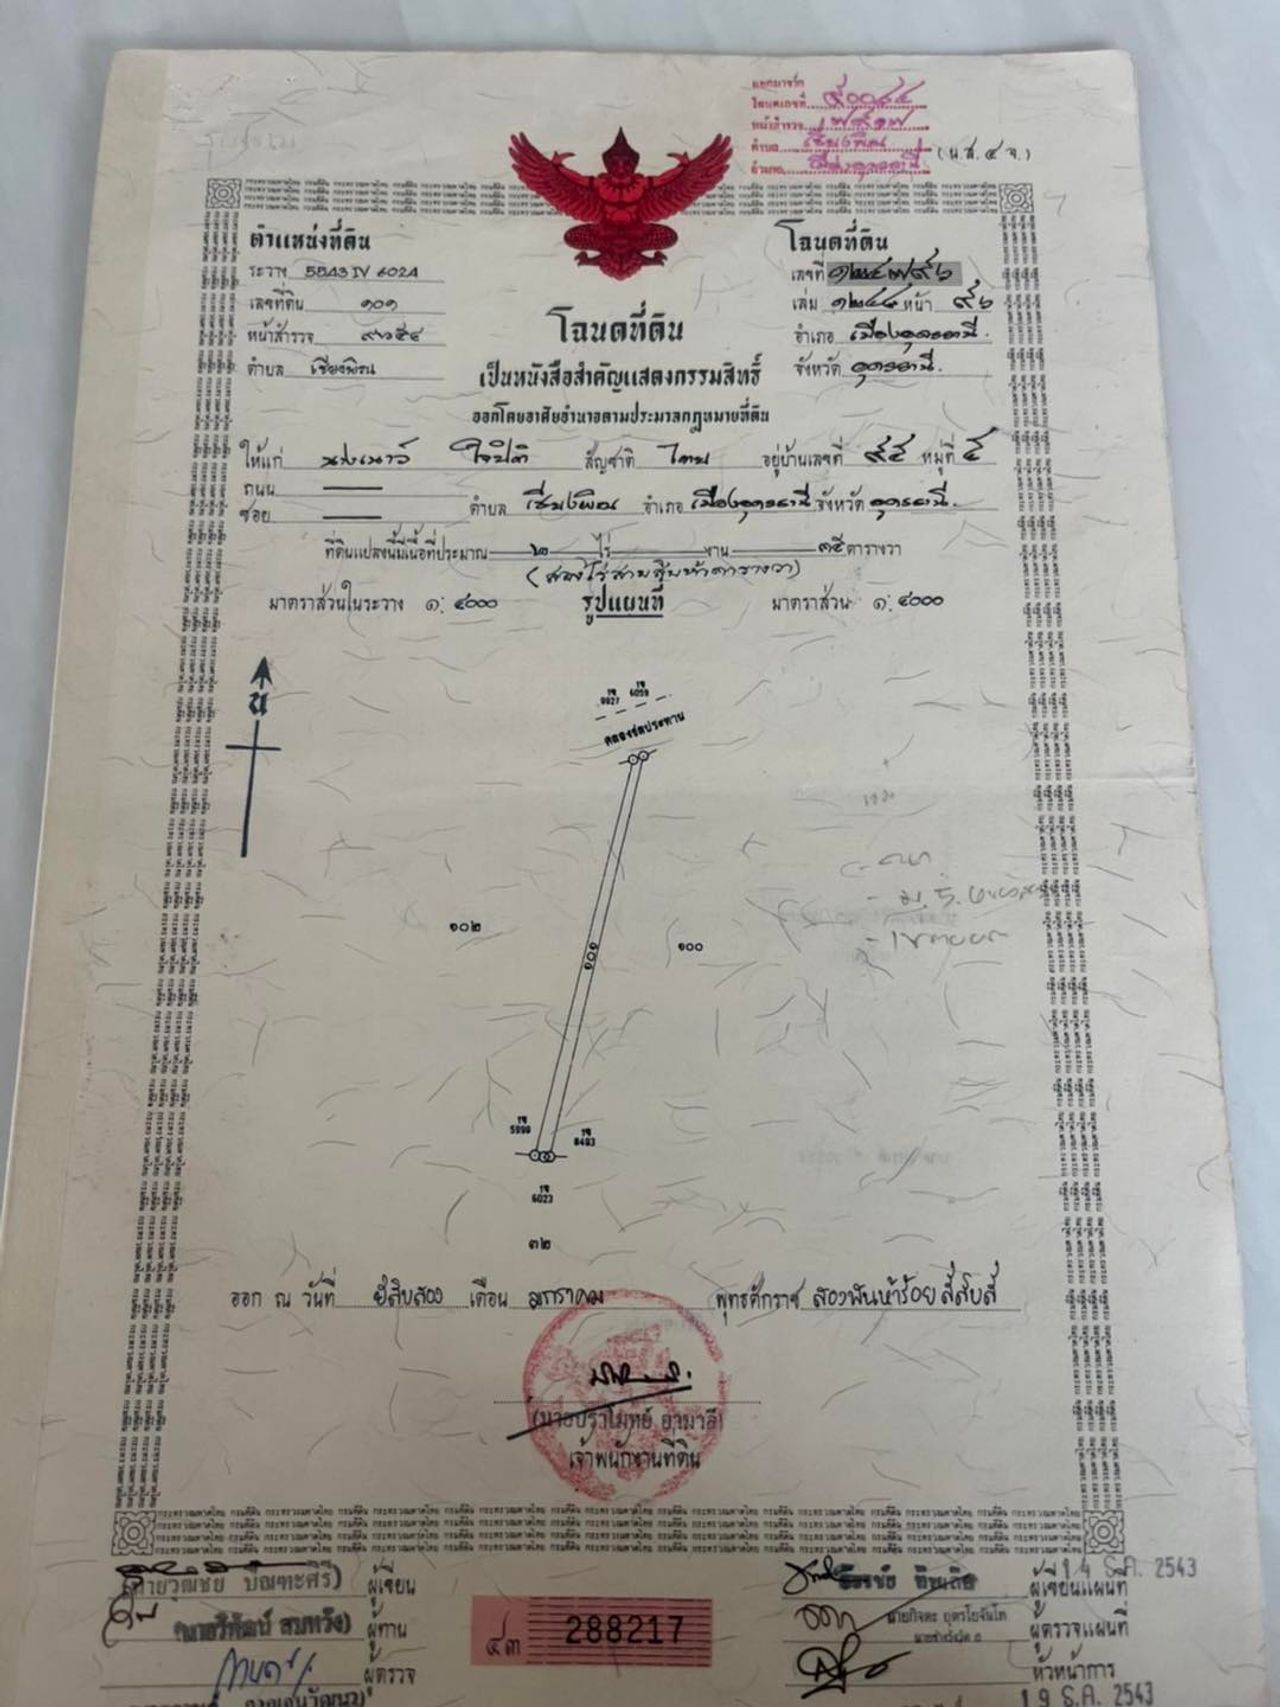 แยกมาจาก
โฉนดเลขที่ ๙๐๐๘๔
หน้าสำรวจ
ตำบล เชียงพิณ
อำเภอ เมืองอุดรธานี
(น.ส. ๔ จ.)
ตำแหน่งที่ดิน
ระวาง 5543 IV 6024
เลขที่ดิน ๑๐๑
หน้าสำรวจ
ตำบล เชียงพิณ
โฉนดที่ดิน
เลขที่
เล่ม หน้า ๙๖
อำเภอ เมืองอุดรธานี.
จังหวัด อุดรธานี.
โฉนดที่ดิน
เป็นหนังสือสำคัญแสดงกรรมสิทธิ์
ออกโดยอาศัยอำนาจตามประมวลกฎหมายที่ดิน
ให้แก่ สัญชาติ ไทย อยู่บ้านเลขที่ ๙๕ หมู่ที่ ๕
ถนน
ซอย
ตำบล เชียงพิณ อำเภอ เมืองอุดรธานี จังหวัด อุดรธานี.
ที่ดินแปลงนี้มีเนื้อที่ประมาณ ๒ ไร่ งาน ๓๕ ตารางวา
(สองไร่สามสิบห้าตารางวา)
มาตราส่วนในระวาง ๑: ๔๐๐๐ รูปแผนที่ มาตราส่วน ๑: ๔๐๐๐
น
9927 6059
คลองชลประทาน
๑๐๒
๑๐๑
๑๐๐
5990
8493
6023
๓๒
ออก ณ วันที่ ยี่สิบสอง เดือน มกราคม พุทธศักราช สองพันห้าร้อยสี่สิบสี่
(นายปราโมทย์ อามาลี)
เจ้าพนักงานที่ดิน
(นายวุฒิชัย ปิณฑะศิริ) ผู้เขียน
(นายวิพัฒน์ สมหวัง) ผู้ทาน
ผู้ตรวจ
๔๓ 288217
ผู้เขียนแผนที่
14 ธ.ค. 2543
นายกิจตะ อุตรโยจันโท
ผู้ตรวจแผนที่
หัวหน้าการ
19 ธ.ค. 2543